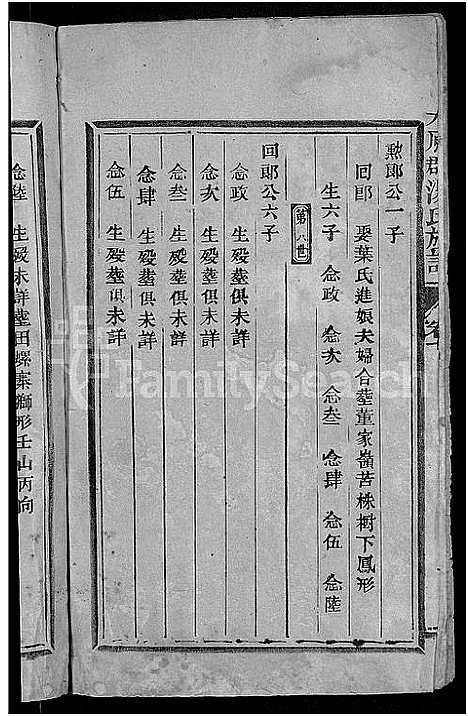 太原郡湯氏族譜
勲郎公一子
囘郎 娶葉氏進娘夫婦合塟董家嶺苦株樹下鳳形
生六子 念政 念次 念叁 念肆 念伍 念陸
第八世
囘郎公六子
念政 生殁塟俱未詳
念次 生殁塟俱未詳
念叁 生殁塟俱未詳
念肆 生殁塟俱未詳
念伍 生殁塟俱未詳
念陸 生殁未詳塟田螺寨獅形壬山丙向
FamilySearch